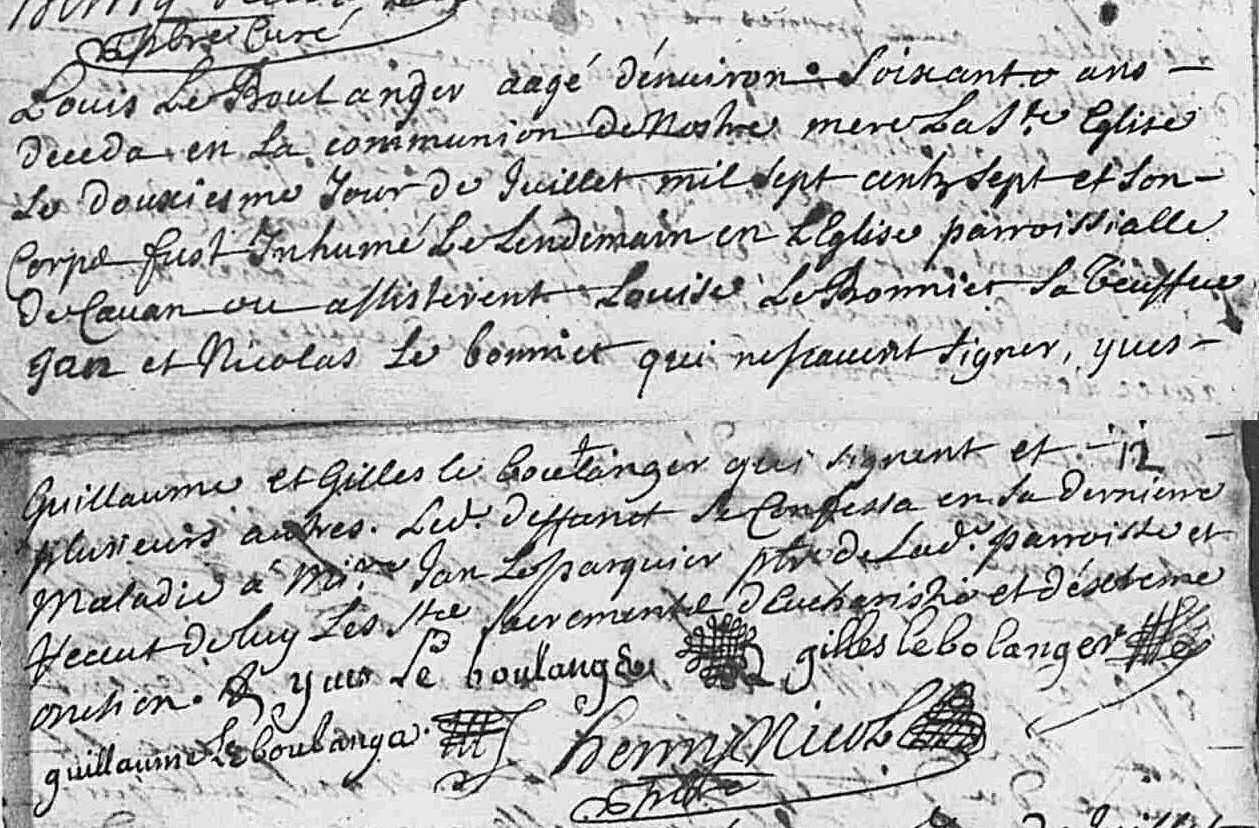 ptbre Curé
Louis Le Boulanger aagé dénuiron Soixante ans –
deceda en La communion de Nostre mere La Ste Eglise
Le douxiesme Jour de Juillet mil sept centz sept et son –
Corps fust Inhumé Le Lendemain en LEglise parroissialle
de Cauan ou assisterent Louise Le Bonniec sa veuffue
Jan et Nicolas Le bonniec qui nesçauent signer, yues –
Guillaume et Gilles le boulanger qui signent et – 12
plusieurs autres. Led. deffunct se Confessa en sa derniere
Maladie a Mire Jan Le parquier ptre de Lad. parroisse et
Receut de luy Les Stz sacrements dEucharistie et déxtreme
onction. yues Le boulanger gilles lebolanger
guillaume Le boulanger henry Nicol
ptbre